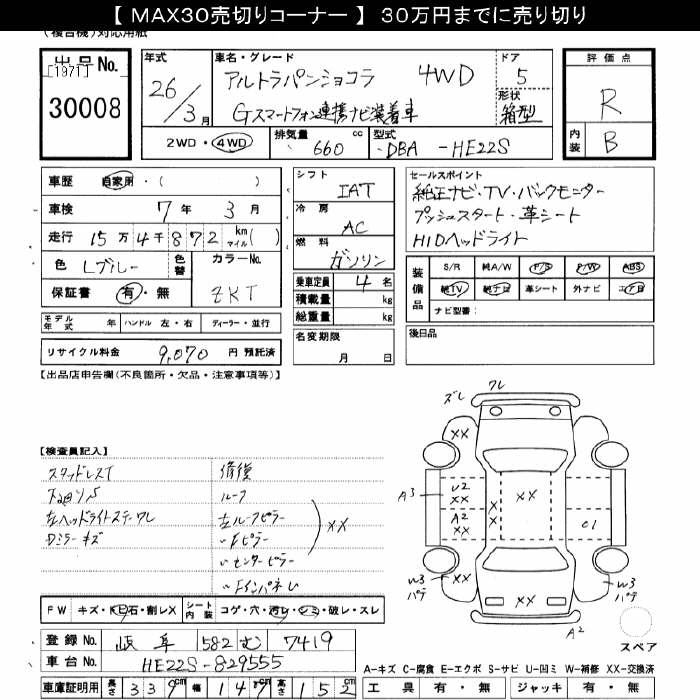 【 MAX30売切りコーナー 】 30万円までに売り切り
(複合機)対応用紙
出品No. [1971] 30008
年式 26/3月
車名・グレード アルトラパンショコラ 4WD
Gスマートフォン連携ナビ装着車
ドア 5
形状 箱型
2WD・4WD 排気量 660 cc 型式 DBA-HE22S
評価点 R
内装 B
車歴 自家用・( )
車検 7年 3月
走行 15万4千872 km マイル( )
色 Lブルー 色替 カラーNo. ZKT
保証書 有・無
シフト IAT
冷房 AC
燃料 ガソリン
乗車定員 4名
積載量 kg
総重量 kg
名変期限 月 日
セールスポイント
純正ナビ・TV・バックモニター
プッシュスタート・革シート
HIDヘッドライト
装備品 S/R A/W P/S P/W ABS
純TV 純ナビ 革シート 外ナビ エアB
ナビ型番:
後日品
モデル年式 年 ハンドル 左・右 ディーラー・並行
リサイクル料金 9,070 円 預託済
【出品店申告欄(不良箇所・欠品・注意事項等)】
【検査員記入】
スタッドレスT
下廻りS
左ヘッドライトステーワレ
Dミラーキズ
修復
ルーフ
左ルーフピラー
〃Fピラー
〃センターピラー
〃Fインパネし
XX
ズレ ワレ
XX
A3 U2 XX
A2 XX
X X
XX
C1
W3 パテ XX
XX
W3 パテ
A2
スペア
FW キズ・トビ石・割レX シート内装 コゲ・穴・汚レ・シミ・破レ・スレ
登録No. 岐阜 582 む 7419
車台No. HE22S-829555
車庫証明用 長さ 339cm 幅 147cm 高さ 152cm
A-キズ C-腐食 E-エクボ S-サビ U-凹ミ W-補修 XX-交換済
工具 有・無 ジャッキ 有・無